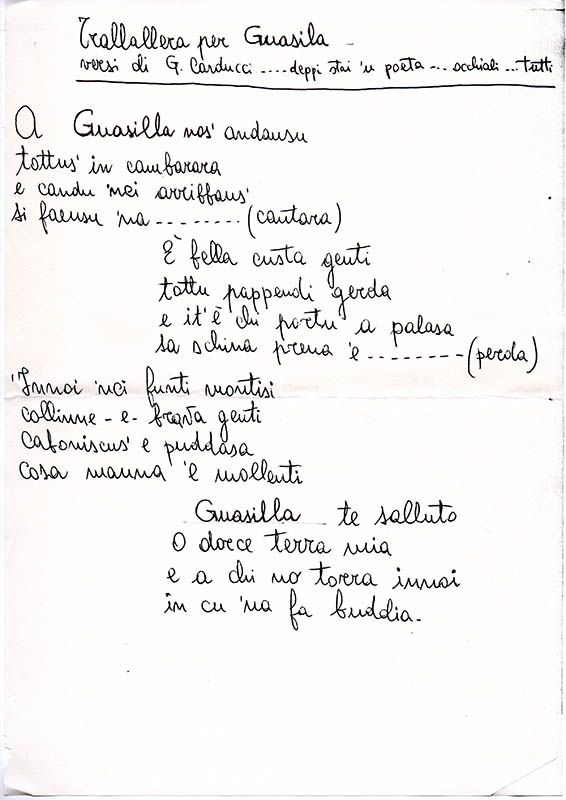 Trallallera per Guasila -
versi di G. Carducci ....deppi stai 'u poeta ... occhiali ...tutti
A Guasilla nos' andausu
tottus' in cambarara
e candu 'nci arriffaus'
si faeusu 'na ........(cantara)
È bella custa genti
tottu pappendi gerda
e it'è chi portu a palasa
sa schina prena 'e ........(perda)
'Innoi 'nci funti montisi
collinne - e - brava genti
Caboniscus' e puddasa
cosa manna 'e mollenti
Guasilla te salluto
O doece terra mia
e a chi no torra innoi
in cu 'na fa buddia.